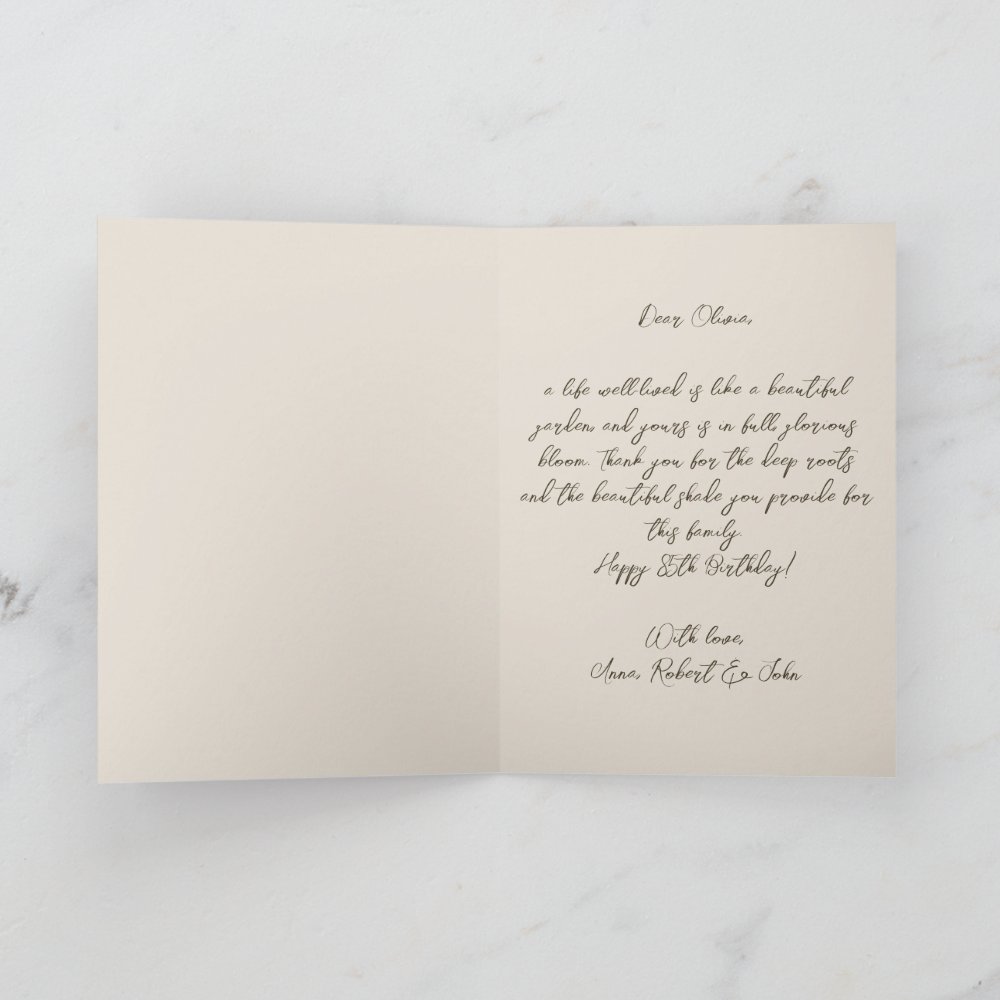 Dear Olivia,
a life well-lived is like a beautiful
garden, and yours is in full, glorious
bloom. Thank you for the deep roots
and the beautiful shade you provide for
this family.
Happy 85th Birthday!
With love,
Anna, Robert & John